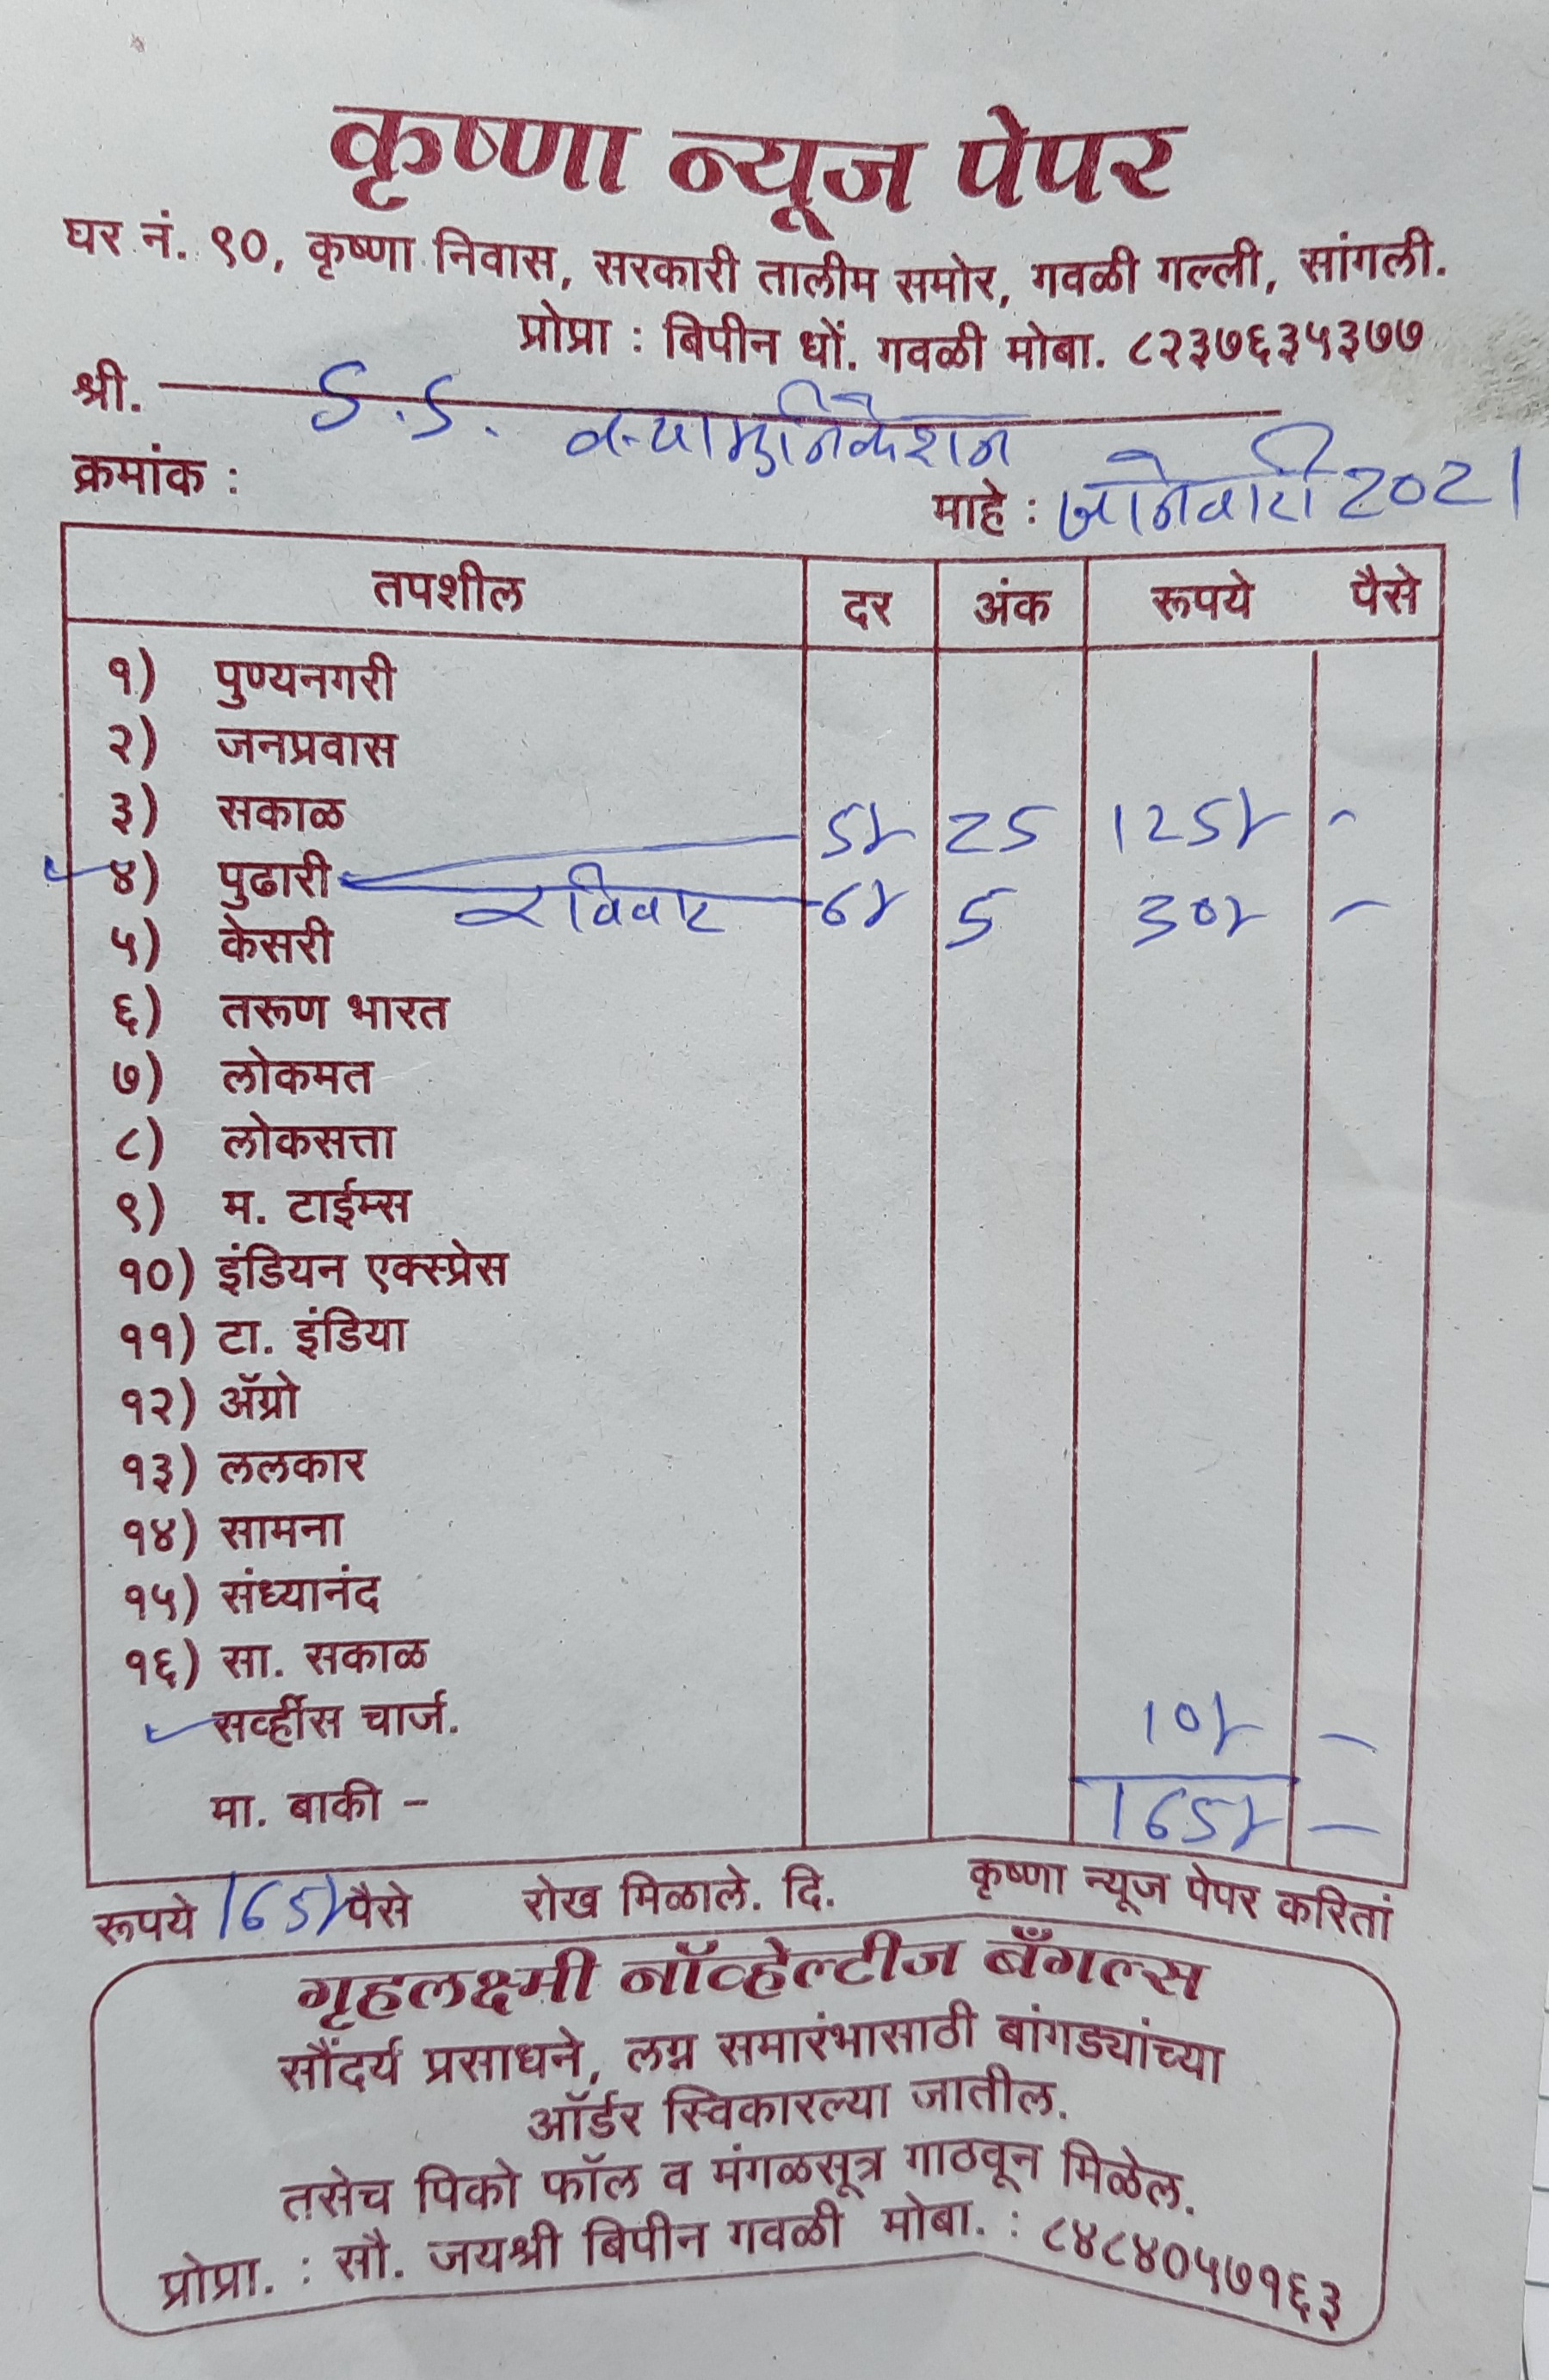 कृष्णा न्यूज पेपर
घर नं. ९०, कृष्णा निवास, सरकारी तालीम समोर, गवळी गल्ली, सांगली.
प्रोप्रा : बिपीन धों. गवळी मोबा. ८२३७६३५३७७
श्री. S.S. कम्युनिकेशन
क्रमांक : माहे : जानेवारी 2021
तपशील दर अंक रूपये पैसे
१) पुण्यनगरी
२) जनप्रवास
३) सकाळ 5/- 25 125/- -
४) पुढारी रविवार 6/- 5 30/- -
५) केसरी
६) तरूण भारत
७) लोकमत
८) लोकसत्ता
९) म. टाईम्स
१०) इंडियन एक्स्प्रेस
११) टा. इंडिया
१२) ॲग्रो
१३) ललकार
१४) सामना
१५) संध्यानंद
१६) सा. सकाळ
सर्व्हीस चार्ज. 10/- -
मा. बाकी - 165/- -
रूपये 165/- पैसे रोख मिळाले. दि. कृष्णा न्यूज पेपर करितां
गृहलक्ष्मी नॉव्हेल्टीज बँगल्स
सौंदर्य प्रसाधने, लग्न समारंभासाठी बांगड्यांच्या
ऑर्डर स्विकारल्या जातील.
तसेच पिको फॉल व मंगळसूत्र गाठवून मिळेल.
प्रोप्रा. : सौ. जयश्री बिपीन गवळी मोबा. : ८४८४०५७१६३